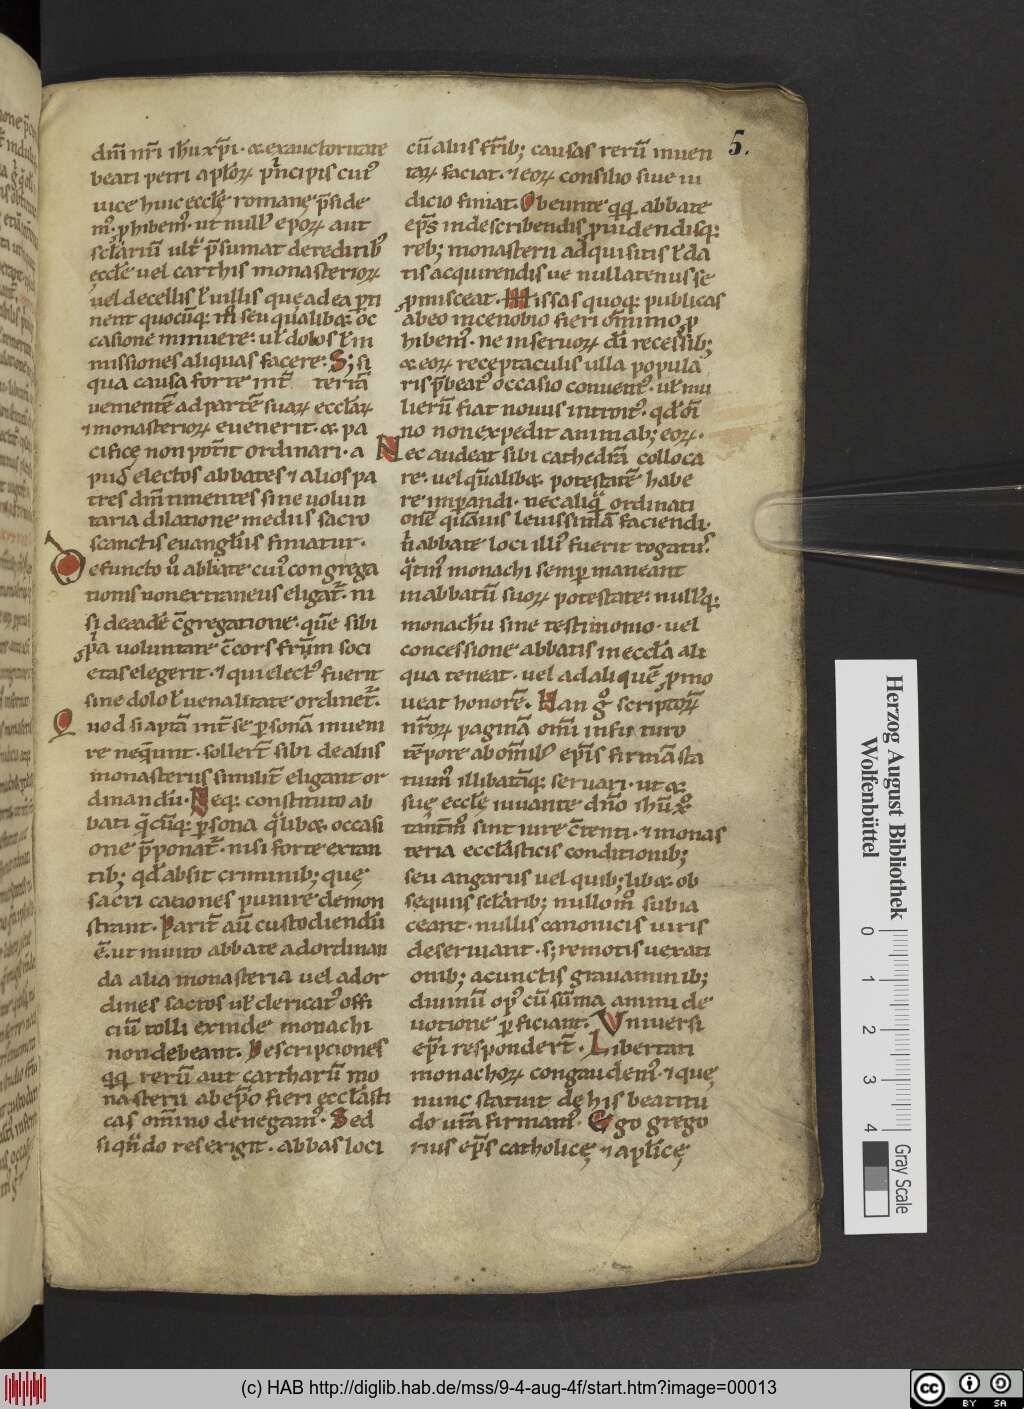 5.
dm̄ nr̄i ih̄u xp̄i · & ex auctoritate
beati petri aplōꝝ prıncipis cuiꝰ
uice huic ecclę̄ romanę p̄side
mꝰ. ꝓhibemꝰ. ut nullꝰ epōꝝ aut
sclāriū ultͣ p̄sumat de reditibꝰ
ęccl̄e uel carthis monasterioꝝ
uel de cellis ł uillis que ad ea ꝑti
nent quocūq: m̄ seu qualibꝫ: oc
casione minuere: uł dolos ł in
missiones aliquas facere: S; si
qua causa forte int̄ terrā
uementē ad partē suaꝝ eccl̄aꝝ
⁊ monasterioꝝ euenerit. & pa
cificę non pot̄it ordinari. a
pud electos abbates ⁊ alios pa
tres dm̄ timentes sine uolun
taria dilatione mediis sacro
scanctis euangłiis finiatur.
Defuncto ů abbate cuiꝰ congrega
tionis non extraneus eligat᷑. ni
si de eadē c̄gregatione. quē sibi
ꝓpͥa uoluntate c̄cors fr̄um soci
etas elegerit. ⁊ qui electꝰ fuerit
sine dolo ł uenalitate ordinet᷑.
Quod si aptā int̄ se ꝑsonā inueni
re neq̄unt. sollert̄ sibi de aliis
monasteriis similit̄ eligant or
dinandū. Neq: constituto ab
bati q̄cūq: ꝑsona qͣlibꝫ occasi
one p̄ponat᷑. nisi forte extan
tib; qd̄ absit criminib; quę
sacri canones punire demon
strant. Parit̄ aū custodiendū
ē. ut inuito abbate ad ordinan
da alia monasteria uel ador
dines sacros uł clericatꝰ offi
ciū tolli exinde monachi
non debeant. Descripciones
qͦqͦ rerū aut cartharū mo
nasterii ab epō fieri eccl̄asti
cas om̄ino denegamꝰ. Sed
si qn̄do res exigit. abbas loci
cū aliis fr̄ib; causas rerū inuen
taꝝ faciat. ⁊ eoꝝ consilio siue iu
dicio finiat. Obeunte qͦqͦ abbate
ep̄s in describendis ꝓuidendisq:
reb; monasterii adquisitis ł da
tis acquirendisue nullatenus se
ꝓmisceat. Missas quoq: publicas
ab eo in cenobio fieri om̄imo ꝓ
hibemꝰ. ne in seruoꝝ di̅ recessib;
& eoꝝ receptaculis ulla popula
ris p̄beatꝰ occasio conuentꝰ. uł mu
lierū fiat nouus introitꝰ. qd̄ om̄i
no non expedit animab; eoꝝ.
Nec audeat sibi cathedrā colloca
re. uel quālibꝫ potestatē habe
re imꝑandi. nec aliqͣ ordinati
onē quāuis leuissimā faciendi.
n̄ abbate loci illiꝰ fuerit rogatꝰ.
qͣtinꝰ monachi semꝑ maneant
in abbatū suoꝝ potestate: nullꝰq:
monachū sine testimonio. uel
concessione abbatis in eccl̄a ali
qua teneat. uel ad aliquē ꝓmo
ueat honorē. Han gͦ scriptoꝝ
nr̄oꝝ paginā om̄i in futuro
tēpore ab om̄ibꝰ ep̄is firmā sta
tuimꝰ illibatāq: seruari. ut &
suę eccl̄e iuuante dn̄o ih̄u xp̄o
tantm̄ sint iure c̄tenti. ⁊ monas
teria eccl̄asticis conditionib;
seu angariis uel quib; libꝫ ob
sequiis sclārib; nullomͦ subia
ceant. nullis canonicis uiris
deseruiant. s; remotis uexati
onib; a cunctis grauaminib;
diuinū opꝰ cū sūma animi de
uotione ꝑficiant. Vniuersi
ep̄i respondert̄. Libertati
monachoꝝ congaudemꝰ. ⁊ que
nunc statuit de his beatitu
do ur̄a firmamꝰ. Ego grego
rius ep̄s catholicę ⁊ apl̄icę
Herzog August Bibliothek
Wolfenbüttel
0 1 2 3 4
Gray Scale
(c) HAB http://diglib.hab.de/mss/9-4-aug-4f/start.htm?image=00013
cc BY SA